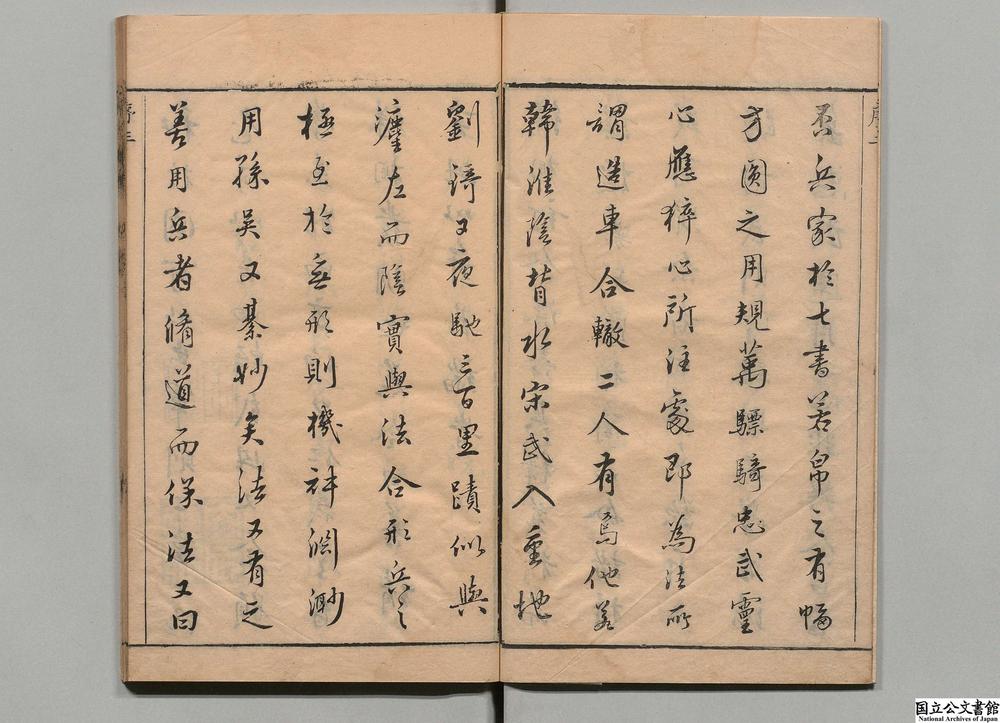 否兵家於七書若帛之有幅
方圓之用規萬驃騎忠武靈
心應猝心所注處即為法所
謂造車合轍二人有焉他若
韓淮陰背水宋武入重地
劉錡又夜馳三百里蹟似與
灋左而陰實與法合形兵之
極至於無形則機神淵渺
用孫吳又綦妙矣法又有之
善用兵者脩道而保法又曰
序三
国立公文書館
National Archives of Japan